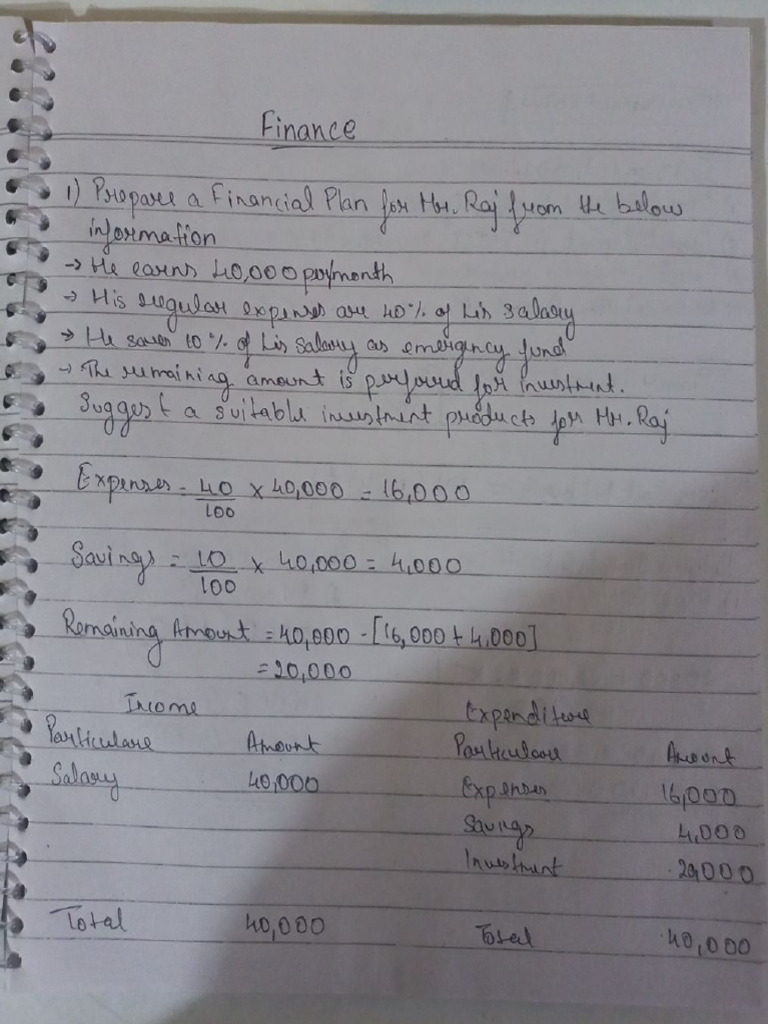 Finance
1) Prepare a Financial Plan for Mr. Raj from the below
information
→ He earns 40,000 per/month
→ His regular expenses are 40% of his salary
→ He saves 10% of his salary as emergency fund
→ The remaining amount is perfored for investment.
Suggest a suitable investment products for Mr. Raj
Expenses = 40/100 × 40,000 = 16,000
Savings = 10/100 × 40,000 = 4,000
Remaining Amount = 40,000 - [16,000 + 4,000]
= 20,000
Income Expenditure
Particulare Amount Particulare Amount
Salary 40,000 Expenses 16,000
Savings 4,000
Investment 20,000
Total 40,000 Total 40,000